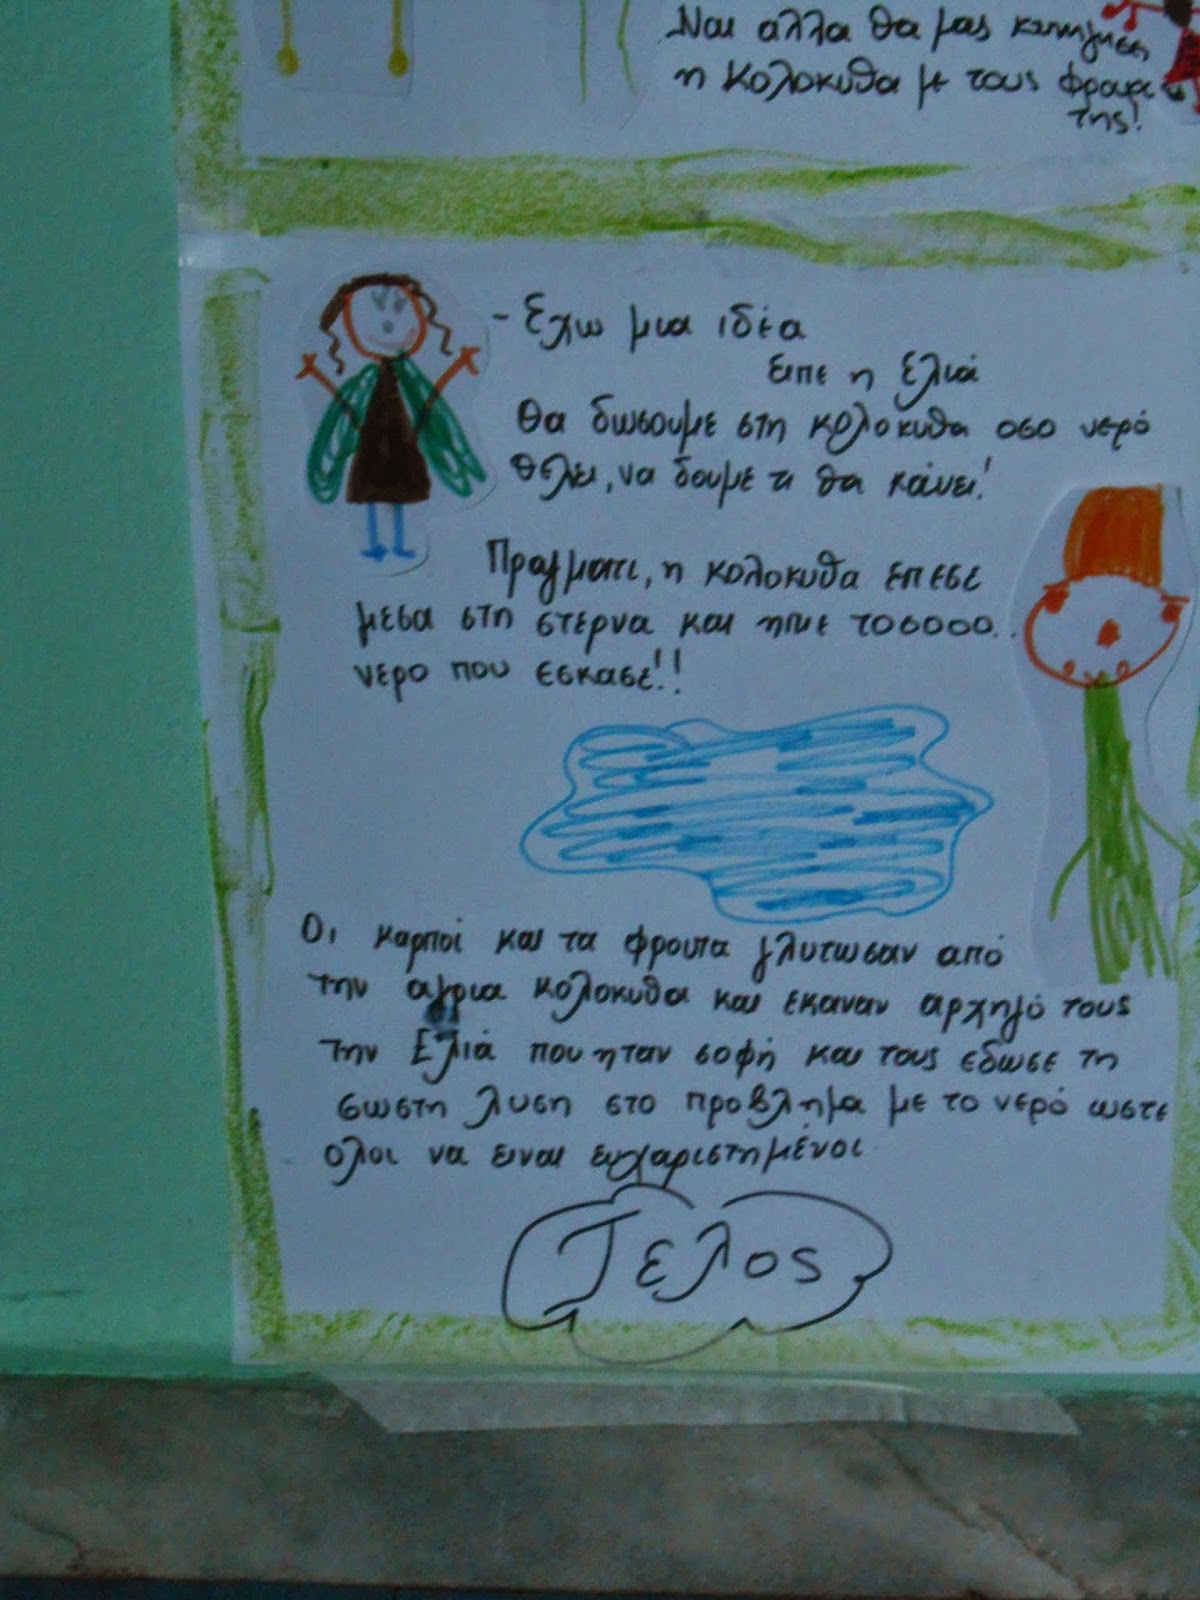 Ναι αλλα θα μας κυνηγησει
η κολοκυθα με τους φρουρους
της!
- Εχω μια ιδέα
ειπε η Ελιά
Θα δωσουμε στη κολοκυθα οσο νερό
θελει, να δουμε τι θα κάνει!
Πραγματι, η κολοκυθα επεσε
μεσα στη στερνα και ηπιε τοσοοο..
νερο που εσκασε!!
Οι καρποί και τα φρουτα γλυτωσαν από
την αγρια κολοκυθα και εκαναν αρχηγό τους
την Ελιά που ηταν σοφή και τους εδωσε τη
σωστη λυση στο προβλημα με το νερό ωστε
ολοι να ειναι ευχαριστημένοι.
Τελος